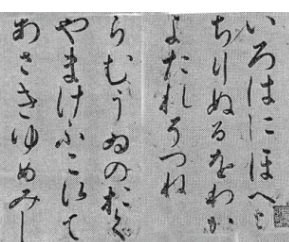 いろはにほへと
ちりぬるをわか
よたれそつね
らむうゐのおく
やまけふこえて
あさきゆめみし